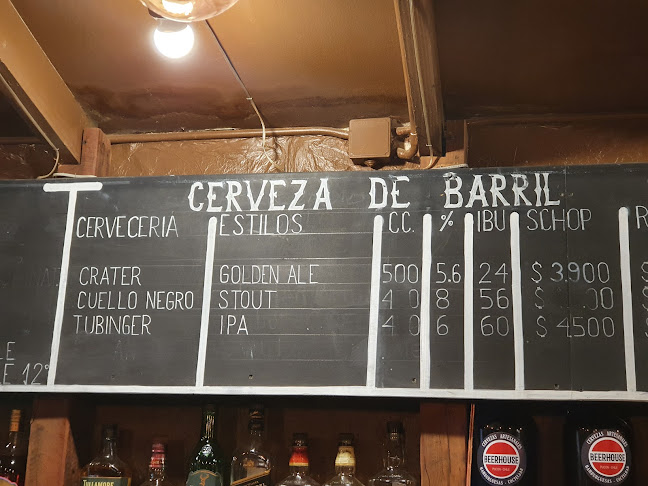 CERVEZA DE BARRIL
CERVECERIA ESTILOS CC. % IBU SCHOP
CRATER GOLDEN ALE 500 5.6 24 $ 3.900
CUELLO NEGRO STOUT 8 56 $
TUBINGER IPA 6 60 $ 4500
12°
BEERHOUSE
BEERHOUSE